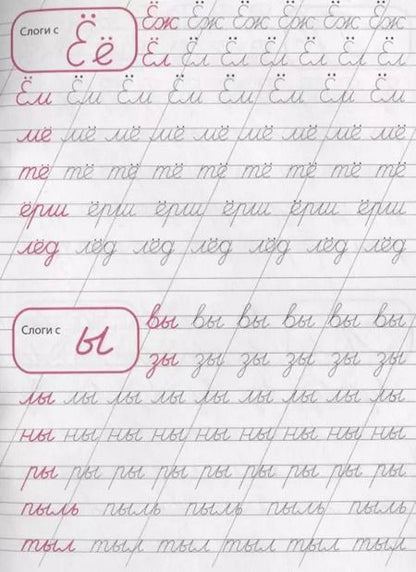 Слоги с Ёё
Ёж Ёж Ёж Ёж Ёж Ёж
Ёл Ёл Ёл Ёл Ёл Ёл Ёл
Ём Ём Ём Ём Ём Ём Ём Ём
мё мё мё мё мё мё мё мё мё
тё тё тё тё тё тё тё тё
ёрш ёрш ёрш ёрш ёрш ёрш
лёд лёд лёд лёд лёд лёд лёд
Слоги с ы
вы вы вы вы вы вы
зы зы зы зы зы зы
лы лы лы лы лы лы лы лы лы
ны ны ны ны ны ны ны ны ны
ры ры ры ры ры ры ры ры ры
пыль пыль пыль пыль пыль
тыл тыл тыл тыл тыл тыл